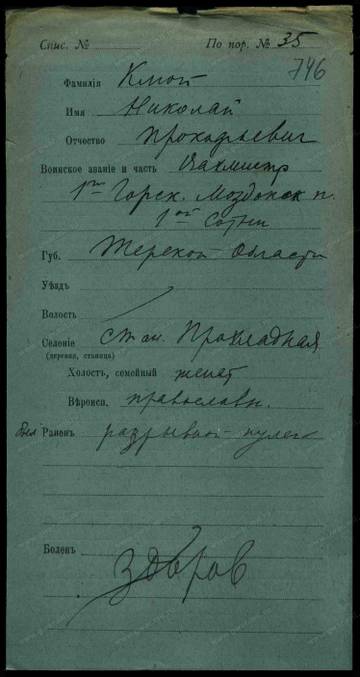 Спис. № По пор. № 35
746
Фамилія Кмой
Имя Николай
Отчество Прокофьевич
Воинское званіе и часть Вахмистр
1го Горск. Моздокск п.
1ой Сотни
Губ. Терской Области
Уѣздъ
Волость
Селеніе стан. Прохладная
(деревня, станица)
Холостъ, семейный женат
Вѣроисп. православн.
был Раненъ разрывной пулей
Боленъ
здоров